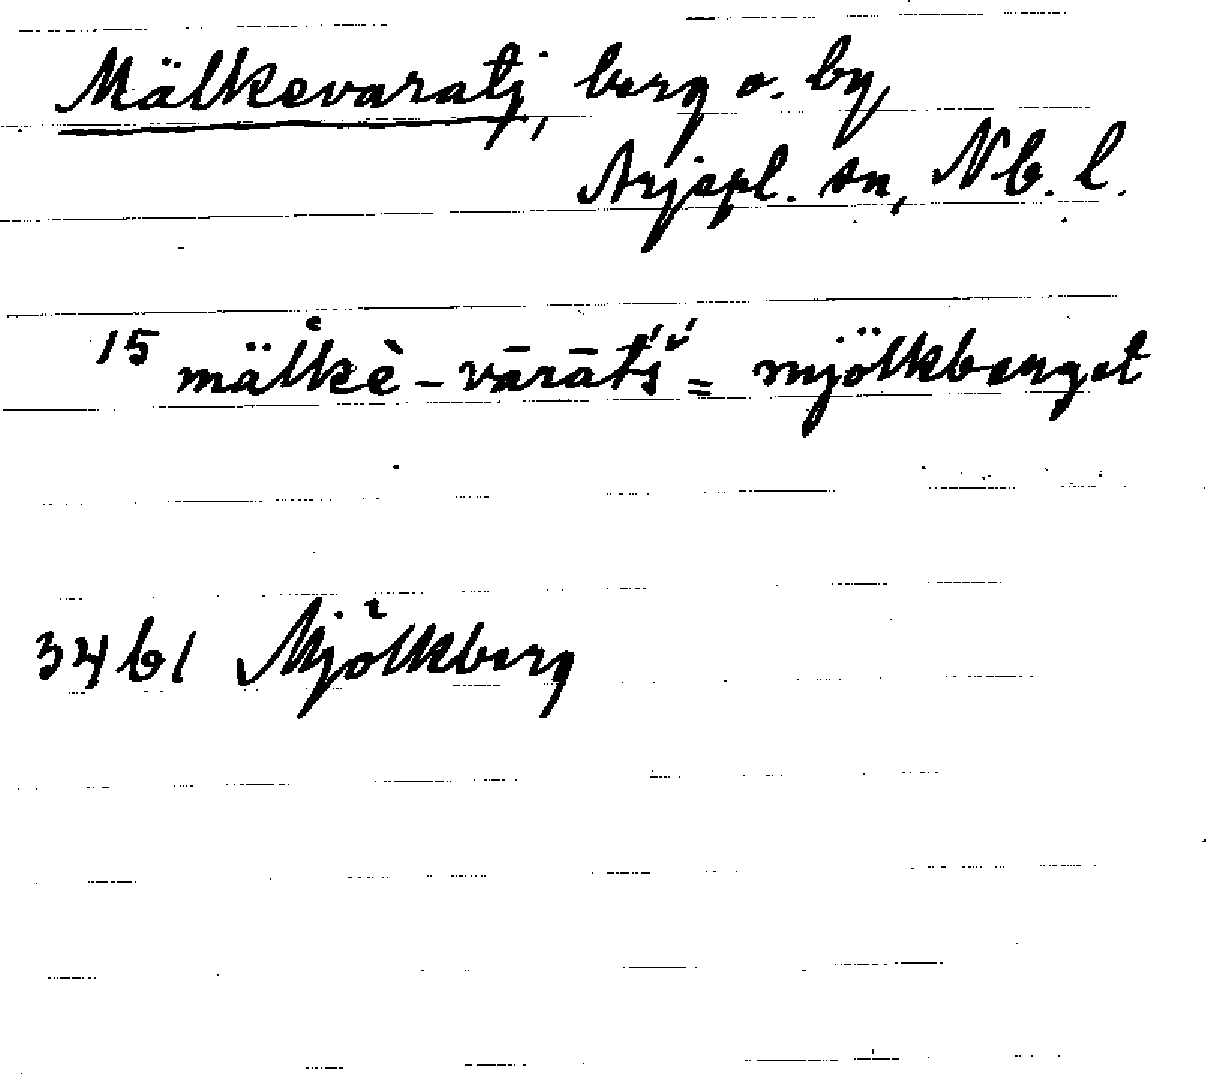 Mälkevaratj, berg o. by,
Arjepl. sn, Nb. l.
15 mälkè - vārāt́ś = mjölkberget
3461 Mjölkberg